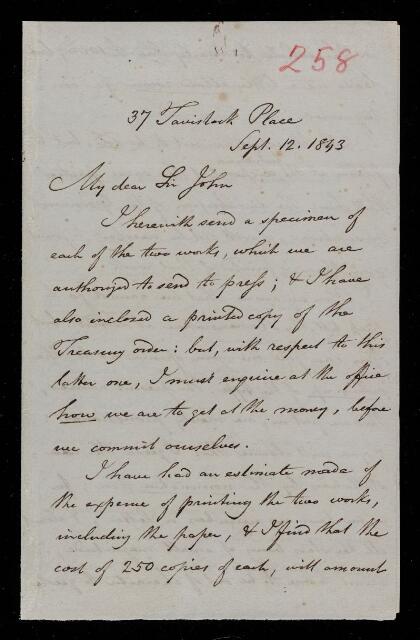 258
37 Tavistock Place
Sept. 12. 1843
My dear Sir John
I herewith send a specimen of
each of the two works, which we are
authorized to send to press; & I have
also inclosed a printed copy of the
Treasury order: but, with respect to this
latter one, I must enquire at the office
how we are to get at the money, before
we commit ourselves.
I have had an estimate made of
the expense of printing the two works,
including the paper, & I find that the
cost of 250 copies of each, will amount